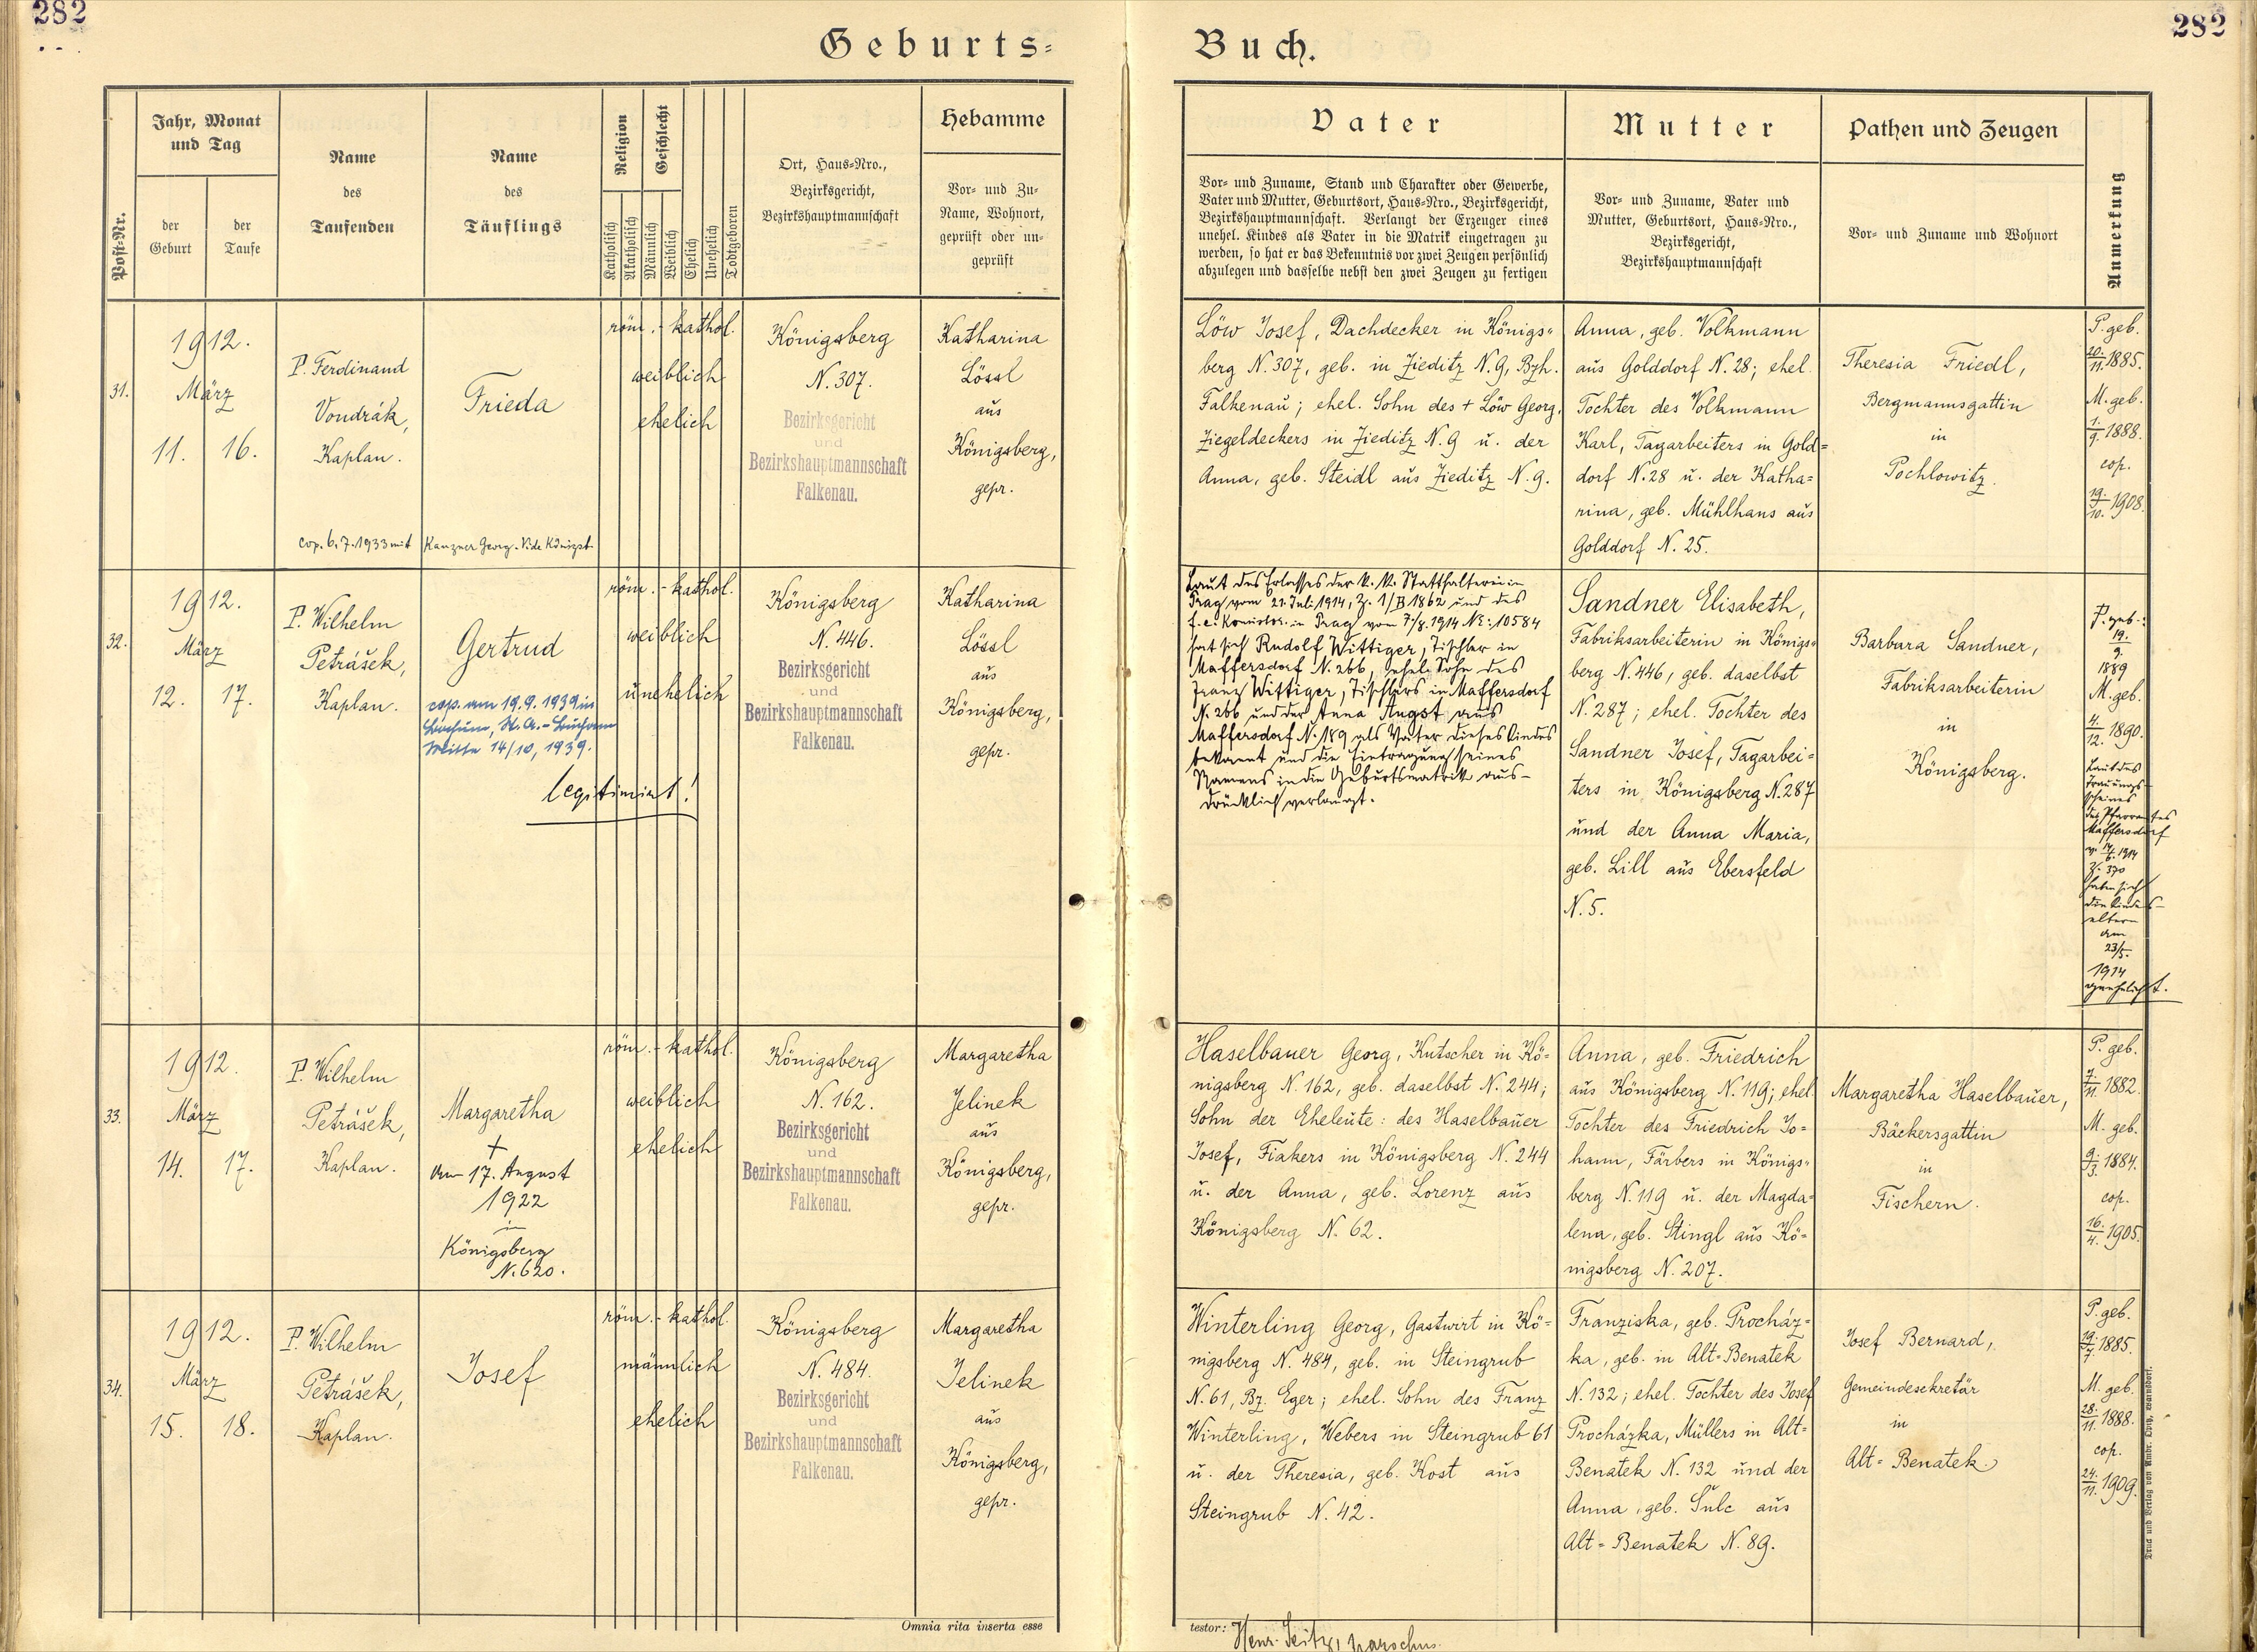 282
282
Geburts-
Buch.
Post-Nr.
Jahr, Monat
und Tag
der
Geburt
der
Taufe
Name
des
Taufenden
Name
des
Täuflings
Religion
Geschlecht
Katholisch
Akatholisch
Männlich
Weiblich
Ehelich
Unehelich
Todtgeboren
Ort, Haus-Nro.,
Bezirksgericht,
Bezirkshauptmannschaft
Hebamme
Vor- und Zu-
Name, Wohnort,
geprüft oder un-
geprüft
Vater
Vor- und Zuname, Stand und Charakter oder Gewerbe,
Vater und Mutter, Geburtsort, Haus-Nro., Bezirksgericht,
Bezirkshauptmannschaft. Verlangt der Erzeuger eines
unehel. Kindes als Vater in die Matrik eingetragen zu
werden, so hat er das Bekenntnis vor zwei Zeugen persönlich
abzulegen und dasselbe nebst den zwei Zeugen zu fertigen
Mutter
Vor- und Zuname, Vater und
Mutter, Geburtsort, Haus-Nro.,
Bezirksgericht,
Bezirkshauptmannschaft
Pathen und Zeugen
Vor- und Zuname und Wohnort
Anmerkung
31.
1912.
März
11. 16.
P. Ferdinand
Vondrák,
Kaplan.
Frieda
cop. 6.7.1933 mit Kanzner Georg. Vide Königsb.
röm.-kathol.
weiblich
ehelich
Königsberg
N. 307.
Bezirksgericht
und
Bezirkshauptmannschaft
Falkenau.
Katharina
Lössl
aus
Königsberg,
gepr.
Löw Josef, Dachdecker in Königs-
berg N. 307, geb. in Zieditz N. 9, Bzh.
Falkenau; ehel. Sohn des + Löw Georg,
Ziegeldeckers in Zieditz N. 9 u. der
Anna, geb. Steidl aus Zieditz N. 9.
Anna, geb. Volkmann
aus Golddorf N. 28; ehel.
Tochter des Volkmann
Karl, Tagarbeiters in Gold-
dorf N. 28 u. der Katha-
rina, geb. Mühlhans aus
Golddorf N. 25.
Theresia Friedl,
Bergmannsgattin
in
Pochlowitz.
P. geb.
20./11. 1885.
M. geb.
1./9. 1888.
cop.
19./10. 1908.
32.
1912.
März
12. 17.
P. Wilhelm
Petrášek,
Kaplan.
Gertrud
cop. am 19.9.1939 in
Bochum, St. A. - Bochum
Mitte 14/10, 1939.
legitimirt!
röm.-kathol.
weiblich
unehelich
Königsberg
N. 446.
Bezirksgericht
und
Bezirkshauptmannschaft
Falkenau.
Katharina
Lössl
aus
Königsberg,
gepr.
Laut des Erlasses der k. k. Statthalterei in
Prag vom 21. Juli 1914, Z. 1/B 1862 und des
f. e. Konsistor. in Prag vom 7/8. 1914 NE: 10584
hat sich Rudolf Wittiger, Tischler in
Maffersdorf N. 266, ehel. Sohn des
Franz Wittiger, Tischlers in Maffersdorf
N. 266 und der Anna Augst aus
Maffersdorf N. 189 als Vater dieses Kindes
bekannt und die Eintragung seines
Namens in die Geburtsmatrik aus-
drücklich verlangt.
Sandner Elisabeth,
Fabriksarbeiterin in Königs-
berg N. 446, geb. daselbst
N. 287; ehel. Tochter des
Sandner Josef, Tagarbei-
ters in Königsberg N. 287
und der Anna Maria,
geb. Lill aus Ebersfeld
N. 5.
Barbara Sandner,
Fabriksarbeiterin
in
Königsberg.
P. geb.:
19.
9.
1889
M. geb.
4./12. 1890.
Laut des
Trauungs-
scheines
des Pfarramtes
Maffersdorf
1914
Z. 370
haben sich
die Kindes-
eltern
am
23/5.
1914
geehelicht.
33.
1912.
März
14. 17.
P. Wilhelm
Petrášek,
Kaplan.
Margaretha
+
am 17. August
1922
in
Königsberg
N. 620.
röm.-kathol.
weiblich
ehelich
Königsberg
N. 162.
Bezirksgericht
und
Bezirkshauptmannschaft
Falkenau.
Margaretha
Jelinek
aus
Königsberg,
gepr.
Haselbauer Georg, Kutscher in Kö-
nigsberg N. 162, geb. daselbst N. 244;
Sohn der Eheleute: des Haselbauer
Josef, Fiakers in Königsberg N. 244
u. der Anna, geb. Lorenz aus
Königsberg N. 62.
Anna, geb. Friedrich
aus Königsberg N. 119; ehel.
Tochter des Friedrich Jo-
hann, Färbers in Königs-
berg N. 119 u. der Magda-
lena, geb. Stingl aus Kö-
nigsberg N. 207.
Margaretha Haselbauer,
Bäckersgattin
in
Fischern.
P. geb.
7./11. 1882.
M. geb.
9./3. 1884.
cop.
16./4. 1905.
34.
1912.
März
15. 18.
P. Wilhelm
Petrášek,
Kaplan.
Josef
röm.-kathol.
männlich
ehelich
Königsberg
N. 484.
Bezirksgericht
und
Bezirkshauptmannschaft
Falkenau.
Margaretha
Jelinek
aus
Königsberg,
gepr.
Winterling Georg, Gastwirt in Kö-
nigsberg N. 484, geb. in Steingrub
N. 61, Bz. Eger; ehel. Sohn des Franz
Winterling, Webers in Steingrub 61
u. der Theresia, geb. Kost aus
Steingrub N. 42.
Franziska, geb. Procház-
ka, geb. in Alt-Benatek
N. 132; ehel. Tochter des Josef
Procházka, Müllers in Alt-
Benatek N. 132 und der
Anna, geb. Šulc aus
Alt-Benatek N. 89.
Josef Bernard,
Gemeindesekretär
in
Alt-Benatek.
P. geb.
19./7. 1885.
M. geb.
28./11. 1888.
cop.
24./11. 1909.
Omnia rita inserta esse
testor:
Henr. Seitz, parochus.
Druck und Verlag von Ambr. Opitz, Warnsdorf.